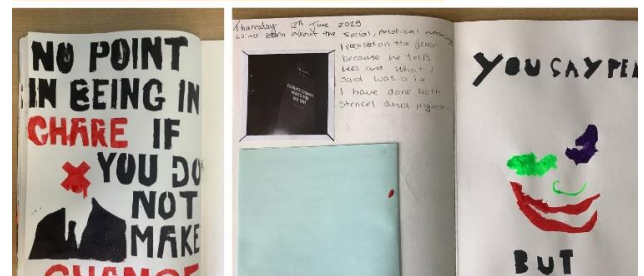 NO POINT
IN BEING IN
CHARE IF
YOU DO
NOT
MAKE
CHANGE
Thursday 12th June 2025
learn about the social, political
I focused on the joker
because he tells
lies and what I
said was a lie
I have done both
stencil and
YOU SAY PEA
BUT